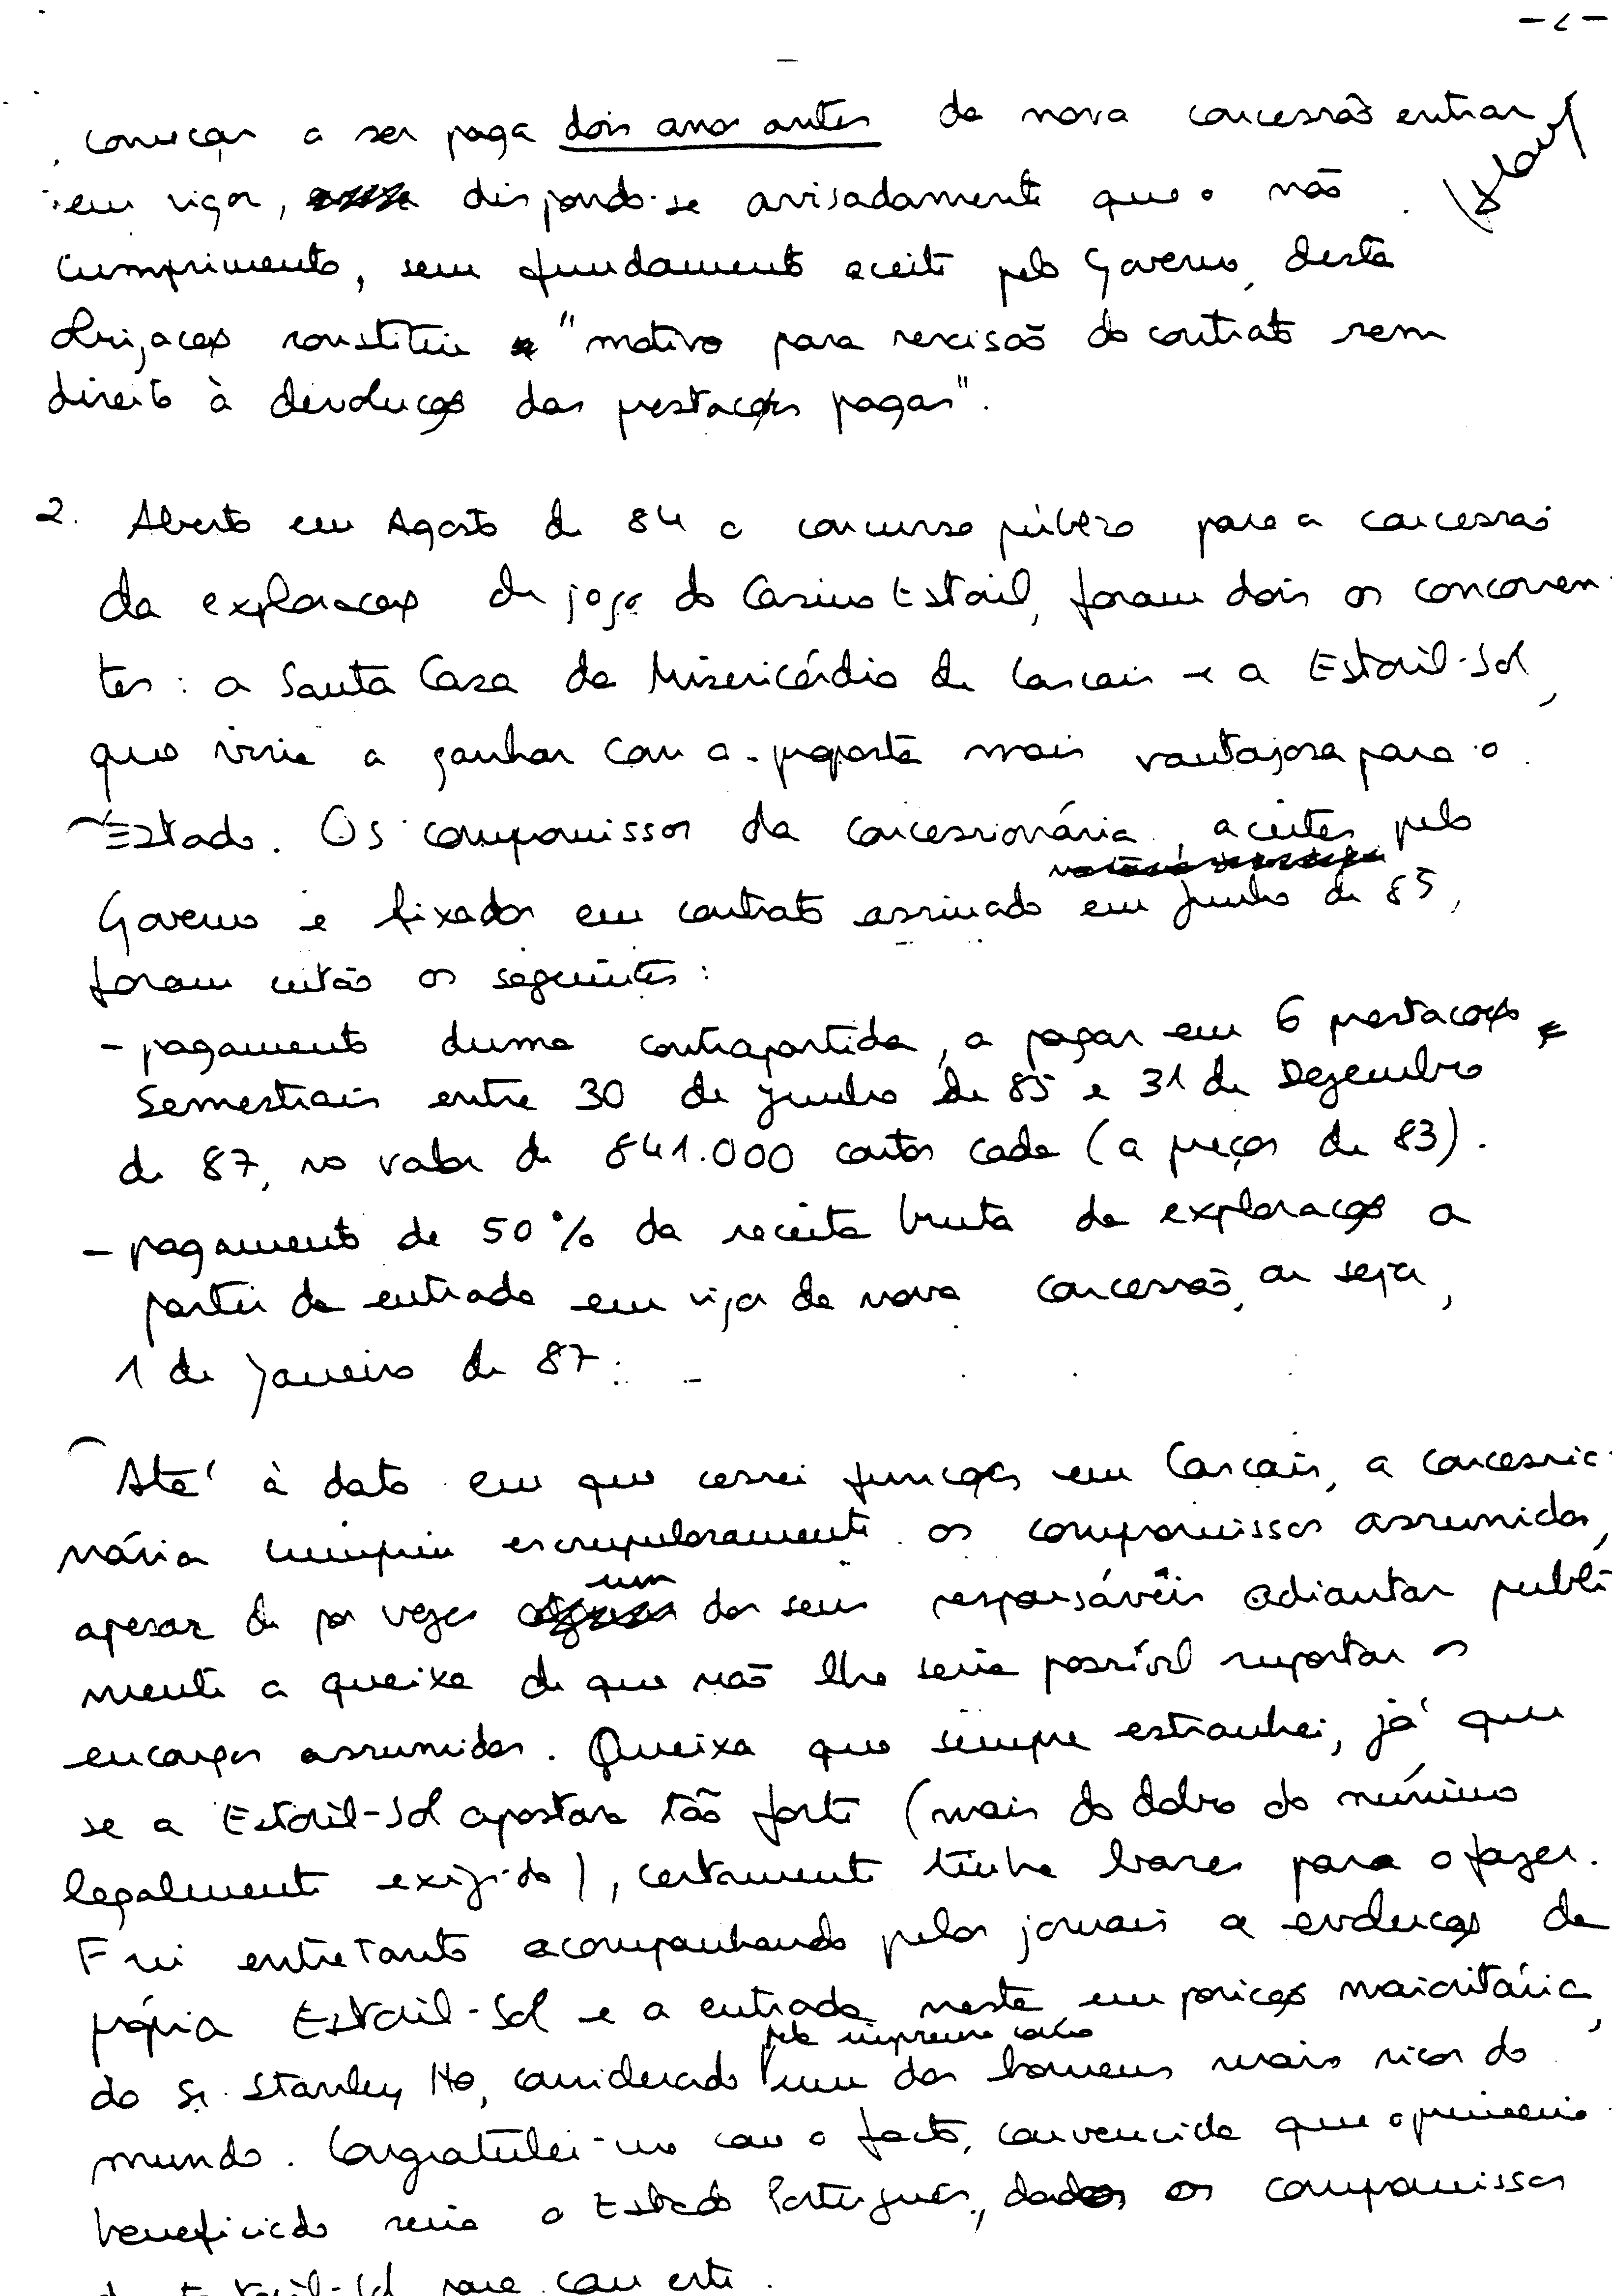 - 2 -
começar a ser paga dois anos antes da nova concessão entrar
em vigor, dispondo-se avisadamente que o não
cumprimento, sem fundamento aceite pelo Governo, desta
obrigação constitui "motivo para rescisão do contrato sem
direito à devolução das prestações pagas".
2. Aberto em Agosto de 84 o concurso público para a concessão
da exploração de jogo do Casino Estoril, foram dois os concorren-
tes: a Santa Casa da Misericórdia de Cascais e a Estoril-Sol,
que viria a ganhar com a proposta mais vantajosa para o
Estado. Os compromissos da concessionária, aceites pelo
Governo e fixados em contrato assinado em Junho de 85,
foram então os seguintes:
- pagamento duma contrapartida, a pagar em 6 prestações
semestrais entre 30 de Junho de 85 e 31 de Dezembro
de 87, no valor de 841.000 contos cada (a preços de 83).
- pagamento de 50% da receita bruta da exploração a
partir da entrada em vigor da nova concessão, ou seja,
1 de Janeiro de 87.
Até à data em que cessei funções em Cascais, a concessio-
nária cumpriu escrupulosamente os compromissos assumidos,
apesar de por vezes um dos seus responsáveis adiantar publi
mente a queixa de que não lhe seria possível suportar os
encargos assumidos. Queixa que sempre estranhei, já que
se a Estoril-Sol apostara tão forte (mais do dobro do mínimo
legalmente exigido), certamente tinha bases para o fazer.
Fui entretanto acompanhando pelos jornais a evolução da
própria Estoril-Sol e a entrada nesta em posição maioritária,
do Sr. Stanley Ho, considerado pela imprensa como um dos homens mais ricos do
mundo. Congratulei-me com o facto, convencida que o primeiro
beneficiado seria o Estado Português, dados os compromissos
da Estoril-Sol para com este.